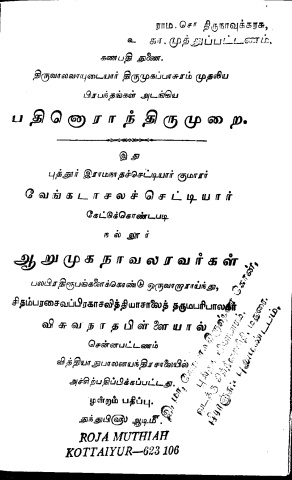 ராம. சொ திருநாவுக்கரசு,
உ கா. முத்துப்பட்டணம்.
கணபதி துணை.
திருவாலவாயுடையார் திருமுகப்பாசுரம் முதலிய
பிரபந்தங்கள் அடங்கிய
பதினொராந்திருமுறை.
இது
புத்தூர் இராமநாதச்செட்டியார் குமாரர்
வேங்கடாசலச்செட்டியார்
கேட்டுக்கொண்டபடி
நல்லூர்
ஆறுமுகநாவலரவர்கள்
பலபிரதிரூபங்களைக்கொண்டு ஒருவாறாராய்ந்து,
சிதம்பரசைவப்பிரகாசவித்தியாசாலைத் தருமபரிபாலகர்
விசுவநாதபிள்ளையால்
சென்னபட்டணம்
வித்தியாநுபாலனயந்திரசாலையில்
அச்சிற்பதிப்பிக்கப்பட்டது.
மூன்றாம் பதிப்பு.
ஆடிமீ
ROJA MUTHIAH
KOTTAIYUR—623 106